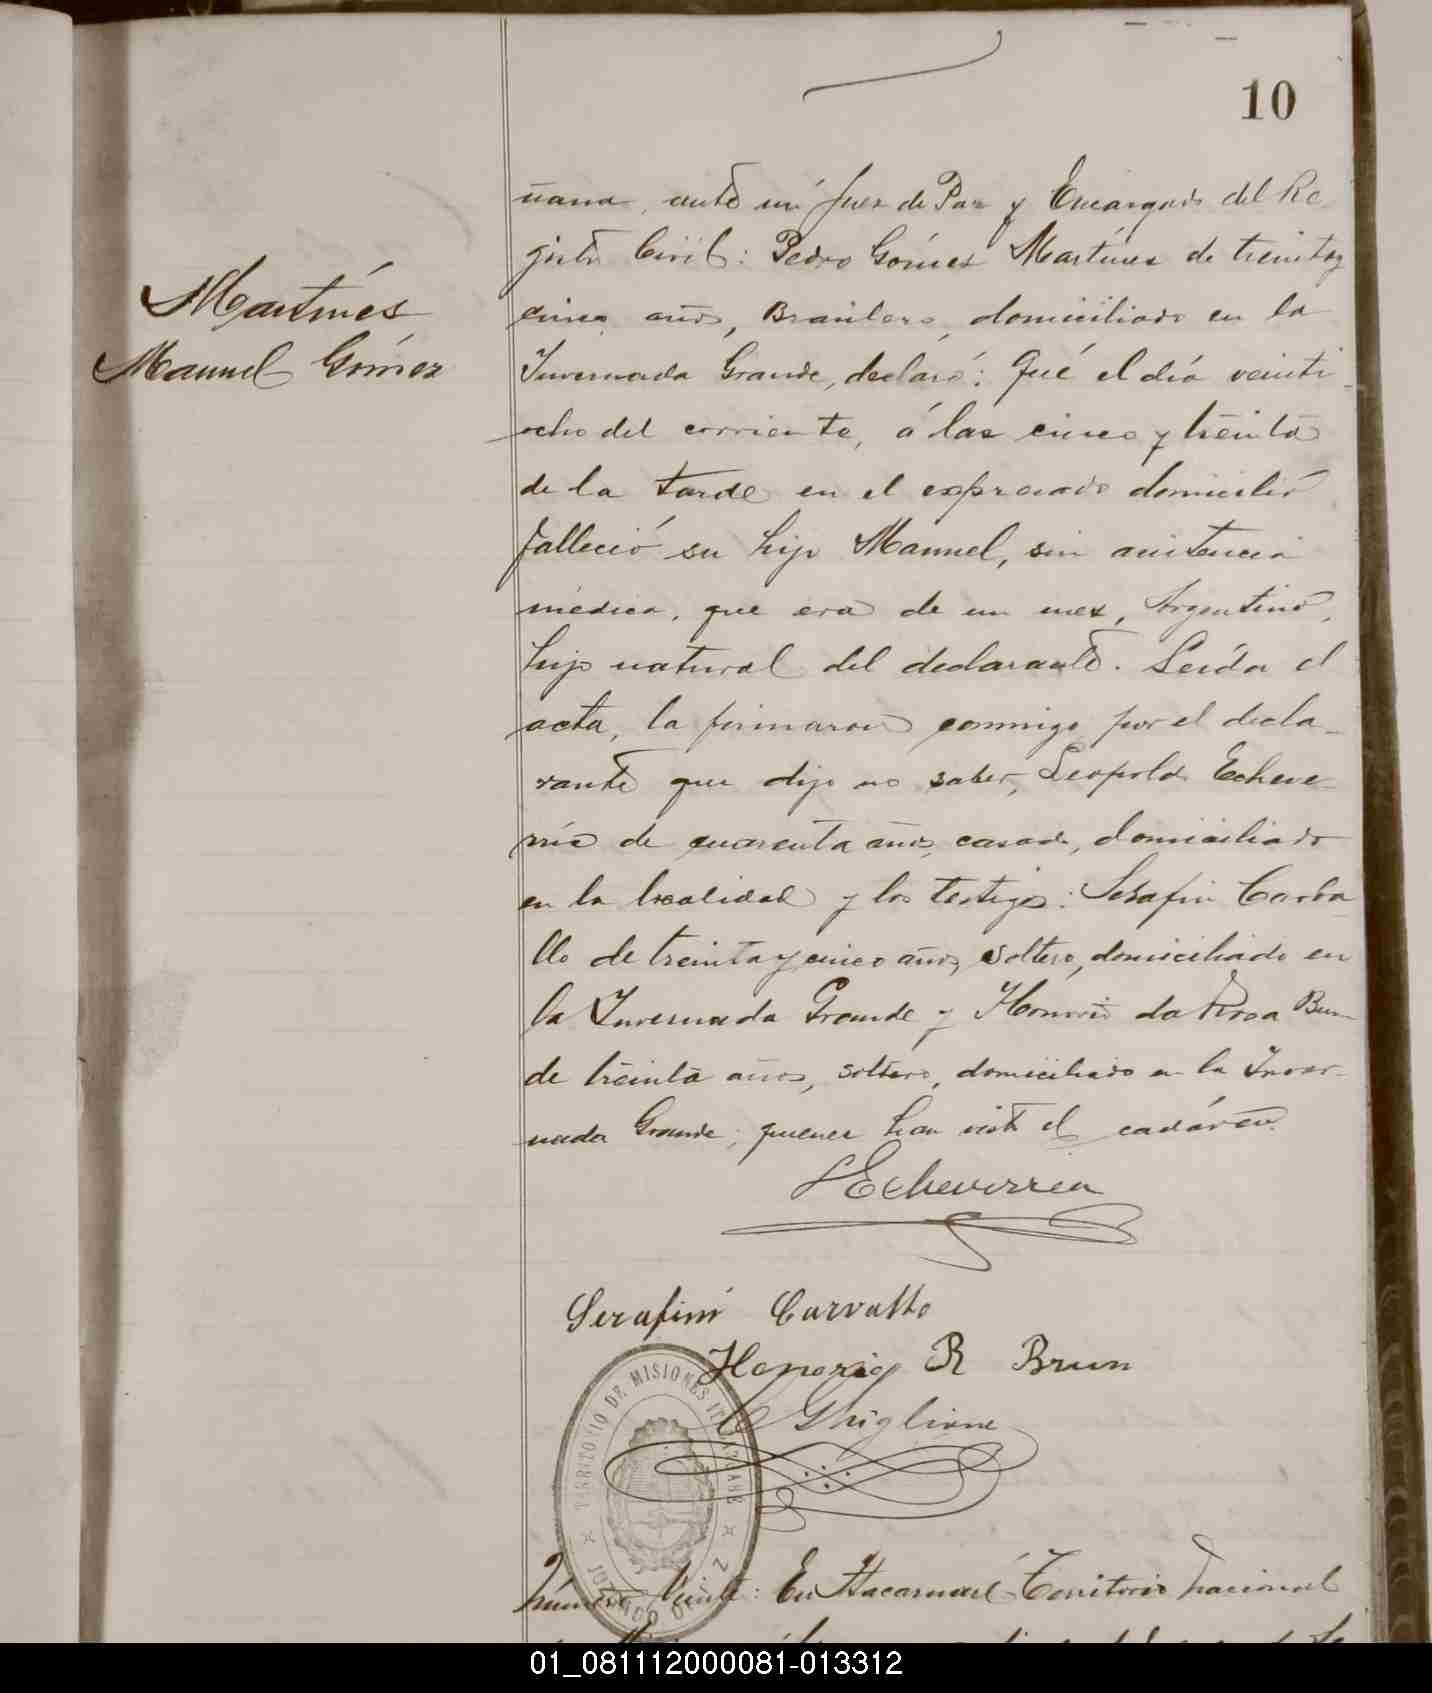 10
ñana, ante mí Juez de Paz y Encargado del Re
gistro Civil: Pedro Gómez Martínez de treinta y
cinco años, Brasilero, domiciliado en la
Invernada Grande, declaró: Qué el día veinti-
ocho del corriente, á las cinco y treinta
de la tarde en el expresado domicilio
falleció su hijo Manuel, sin asistencia
médica, que era de un mes, Argentino,
hijo natural del declarante. Leída el
acta, la firmaron conmigo por el decla-
rante que dijo no saber, Leopoldo Echeve-
rría de cuarenta años, casado, domiciliado
en la localidad y los testigos: Serafin Carba
llo de treinta y cinco años, soltero, domiciliado en
la Invernada Grande y Honorio da Rosa Brun
de treinta años, soltero, domiciliado en la Inver-
nada Grande, quienes han visto el cadáver.
Martínes
Manuel Gómez
LEcheverrea
Serafini Carvallo
Honorio R Brun
Ghiglione
TERRITORIO DE MISIONES
JUZGADO DE
Número Veinte: En Itacaruaré Territorio Nacional
01_081112000081-013312